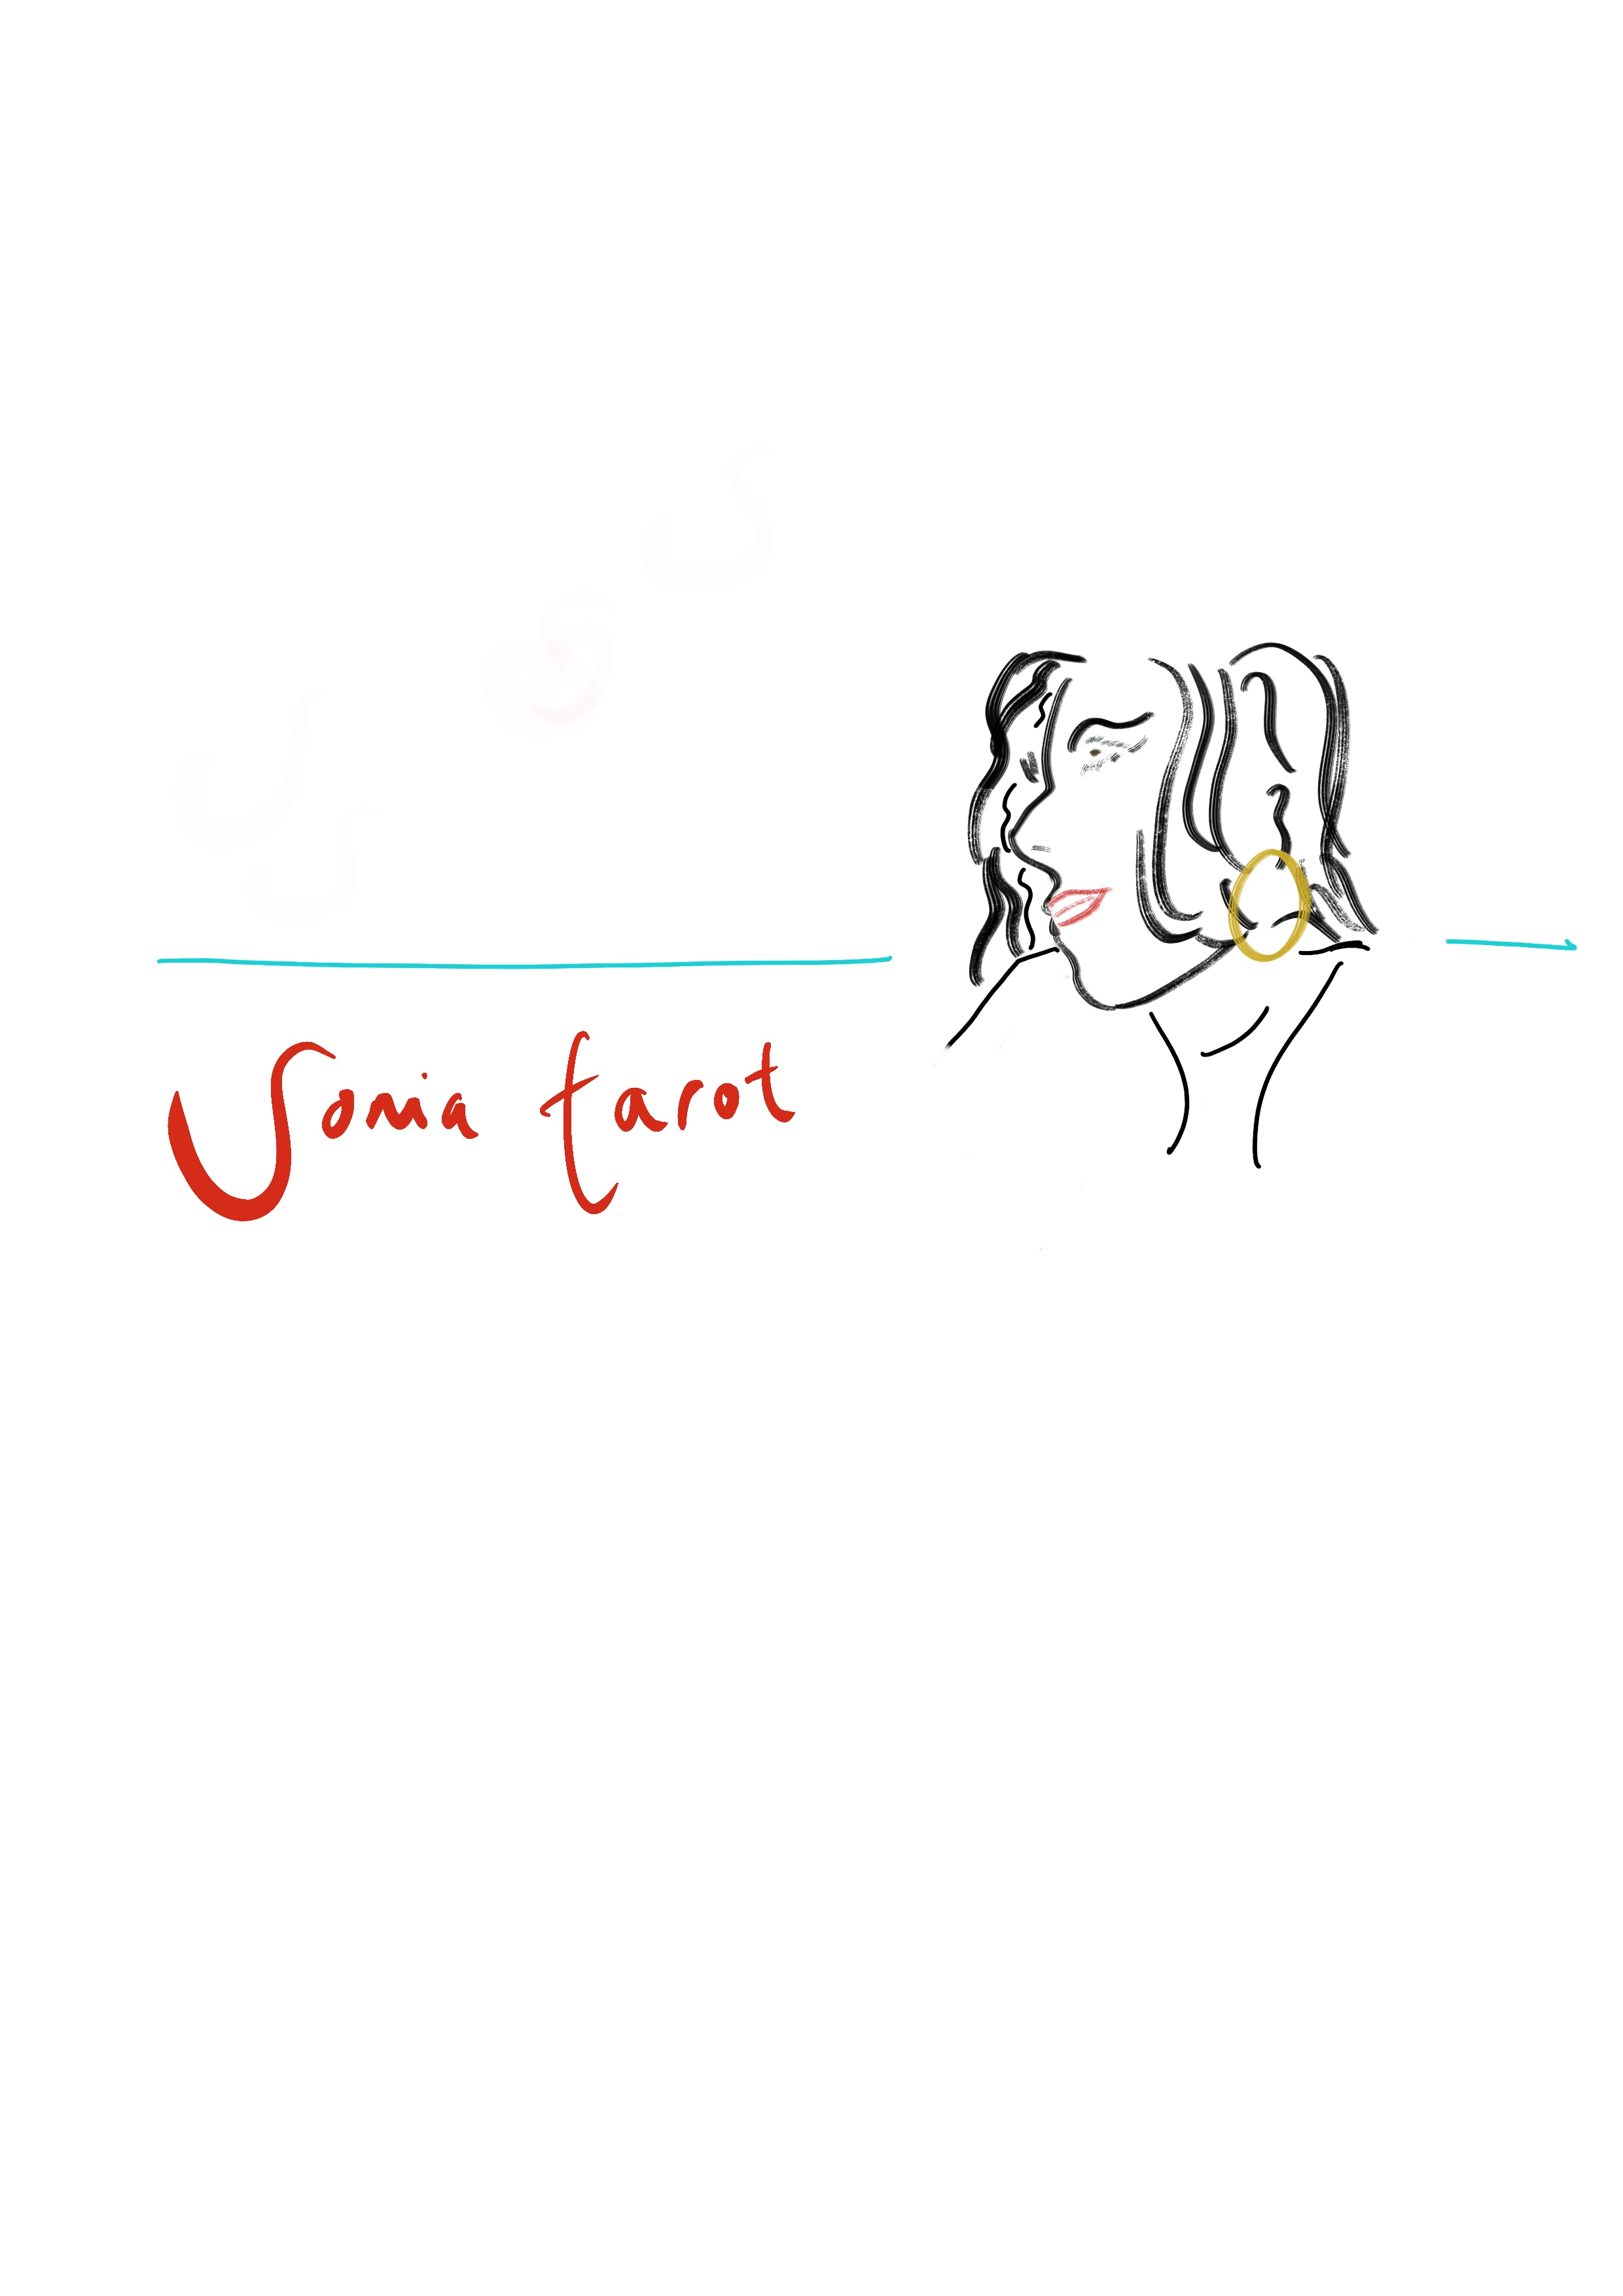 Sonia tarot